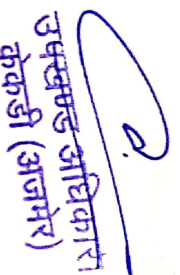 उपखण्ड अधिकारी
केकडी (अजमेर)